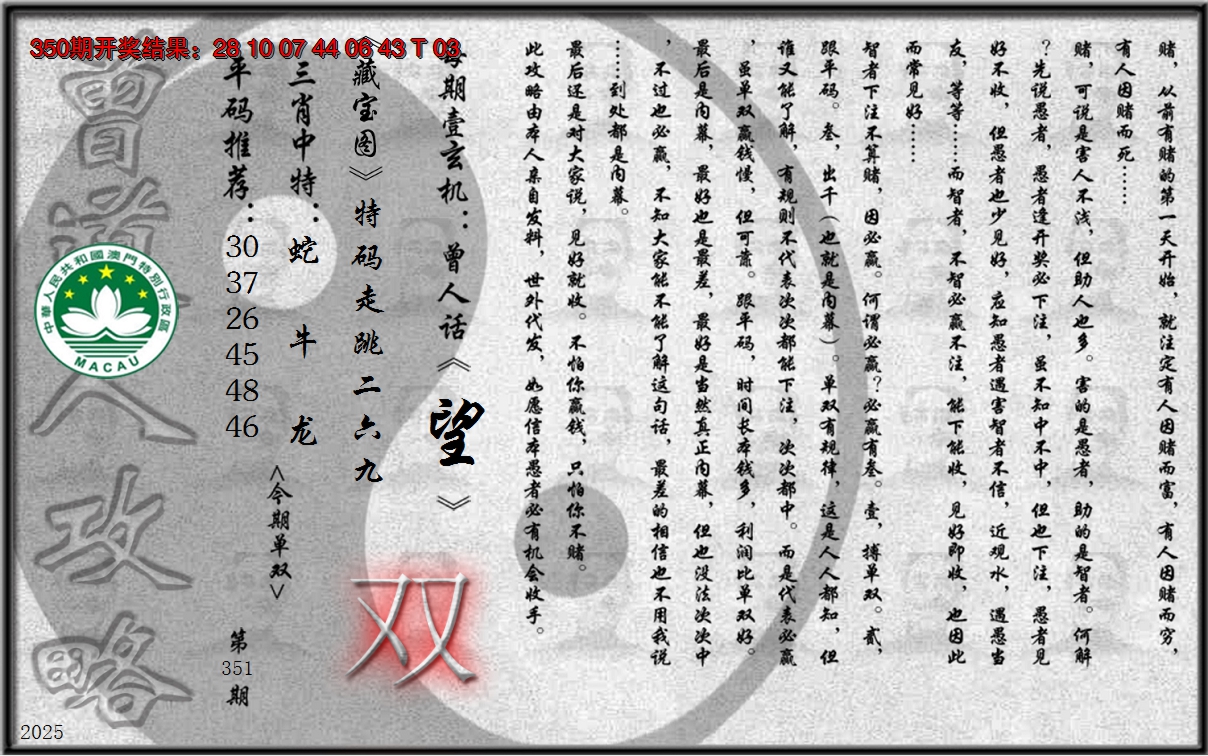 350期开奖结果：28 10 07 44 06 43 T 03
赌，从前有赌的第一天开始，就注定有人因赌而富，有人因赌而穷，
有人因赌而死……
赌，可说是害人不浅，但助人也多。害的是愚者，助的是智者。何解
？先说愚者，愚者逢开奖必下注，虽不知中不中，但也下注，愚者见
好不收，但愚者也少见好，应知愚者遇害智者不信，近观水，遇愚当
友，等等……而智者，不智必赢不注，能下能收，见好即收，也因此
而常见好……
智者下注不算赌，因必赢。何谓必赢？必赢有叁。壹，搏单双。贰，
跟平码。叁，出千（也就是内幕）。单双有规律，这是人人都知，但
谁又能了解，有规则不代表次次都能下注，次次都中。而是代表必赢
，虽单双赢钱慢，但可靠。跟平码，时间长本钱多，利润比单双好。
最后是内幕，最好也是最差，最好是当然真正内幕，但也没法次次中
，不过也必赢，不知大家能不能了解这句话，最差的相信也不用我说
……到处都是内幕。
最后还是对大家说，见好就收。不怕你赢钱，只怕你不赌。
此攻略由本人亲自发料，世外代发，如愿信本愚者必有机会收手。
每期壹玄机：曾人话《望》
《藏宝图》特码走跳二六九
双
三肖中特：蛇 牛 龙
<今期单双>
平码推荐：30 37 26 45 48 46
第351期
曾道人攻略
中華人民共和國澳門特別行政區
MACAU
2025